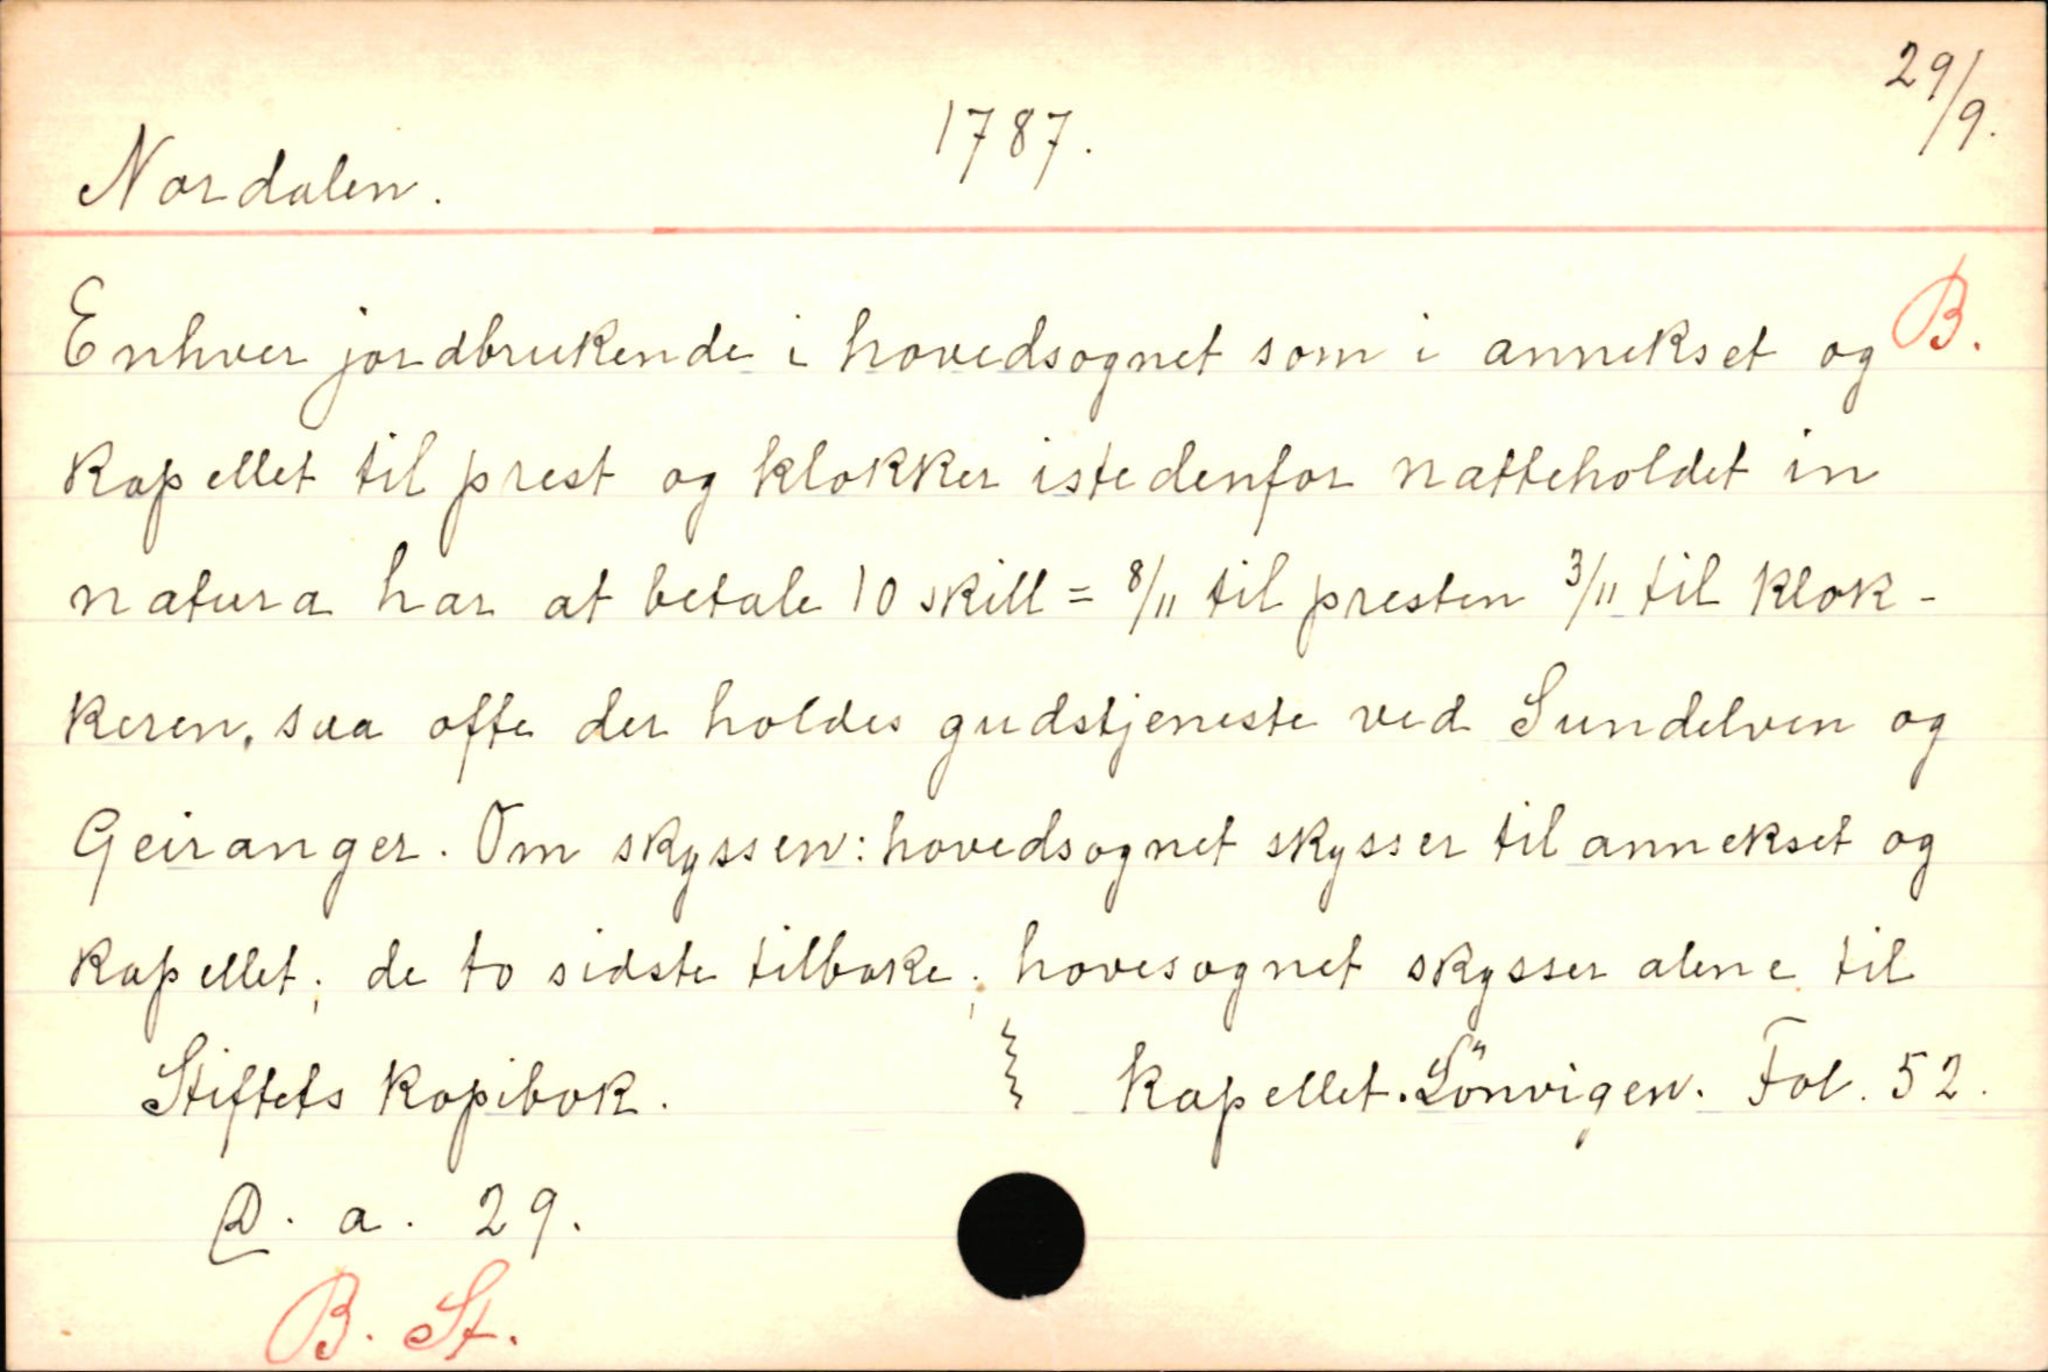 29/9.
1787.
Nordalen.
B.
Enhver jordbrukende i hovedsognet som i annekset og
kapellet til prest og klokker istedenfor natteholdet in
natura har at betale 10 skill = 8/11 til presten 3/11 til klok-
keren, saa ofte der holdes gudstjeneste ved Sundelven og
Geiranger. Om skyssen: hovedsognet skysser til annekset og
kapellet; de to sidste tilbake; hovesognet skysser alene til
Stiftets kopibok. kapellet. Sönvigen. Fol. 52.
D. a. 29.
B. St.